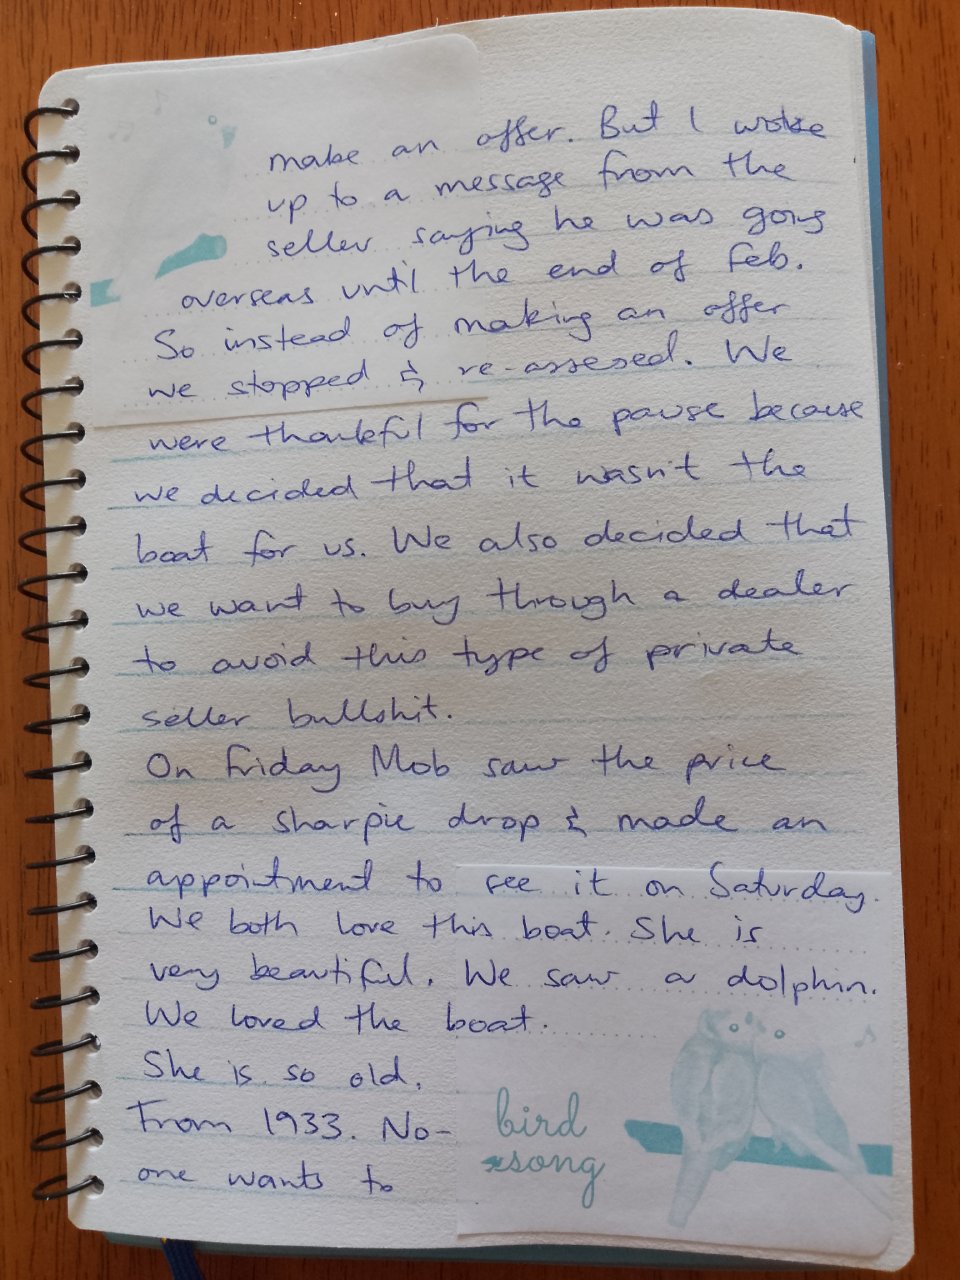 make an offer. But I woke
up to a message from the
seller saying he was going
overseas until the end of Feb.
So instead of making an offer
we stopped & re-assesed. We
were thankful for the pause because
we decided that it wasn't the
boat for us. We also decided that
we want to buy through a dealer
to avoid this type of private
seller bullshit.
On Friday Mob saw the price
of a sharpie drop & made an
appointment to see it on Saturday.
We both love this boat. She is
very beautiful. We saw a dolphin.
We loved the boat.
She is so old.
From 1933. No-
one wants to
bird
song